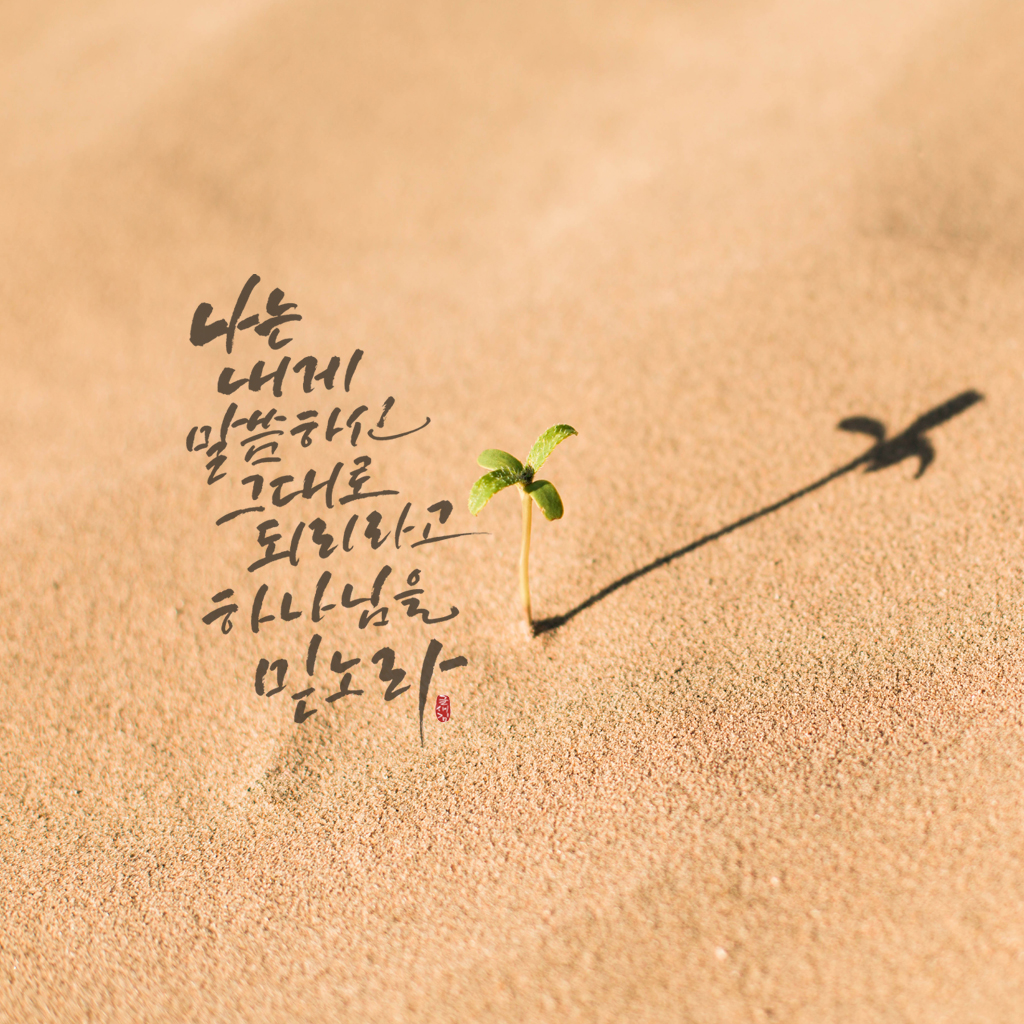 나는
내게
말씀하신
그대로
되리라고
하나님을
믿노라